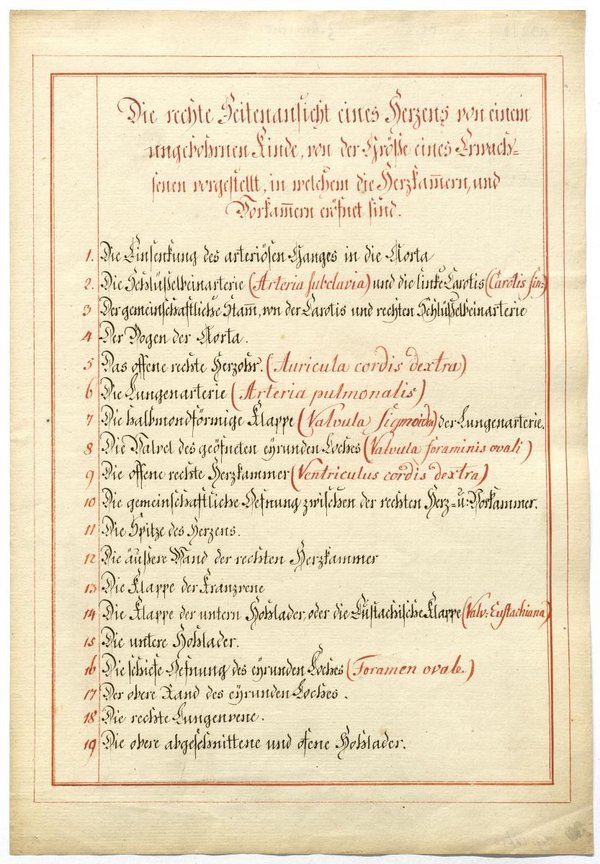 Die rechte Seitenansicht eines Herzens von einem
ungebohrnen Kinde, von der Größe eines Erwach=
senen vorgestellt, in welchem die Herzkam̅ern, und
Vorkam̅ern eröfnet sind.
1. Die Einsenkung des arteriösen Ganges in die Aorta
2. Die Schlüsselbeinarterie (Arteria subclavia) und die linke Carotis (Carotis sin:)
3 Der gemeinschaftliche Stam̅, von der Carotis und rechten Schlüsselbeinarterie
4 Der Bogen der Aorta.
5 Das offene rechte Herzohr. (Auricula cordis dextra)
6 Die Lungenarterie (Arteria pulmonalis)
7 Die halbmondförmige Klappe (Valvula Sigmoida) der Lungenarterie.
8 Die Valvel des geöfneten eyrunden Loches (Valvula foraminis ovali)
9 Die offene rechte Herzkammer (Ventriculus cordis dextra)
10 Die gemeinschaftliche Oefnung zwischen der rechten Herz=u: Vorkammer.
11 Die Spitze des Herzens.
12 Die äußere Wand der rechten Herzkammer
13 Die Klappe der Kranzvene
14 Die Klappe der untern Hohlader, oder die Eustachische Klappe (Valv: Eustachiana)
15 Die untere Hohlader.
16 Die schiefe Oefnung des eyrunden Loches (Foramen ovale.)
17 Der obere Rand des eyrunden Loches.
18 Die rechte Lungenvene.
19 Die obere abgeschnittene und ofene Hohlader.